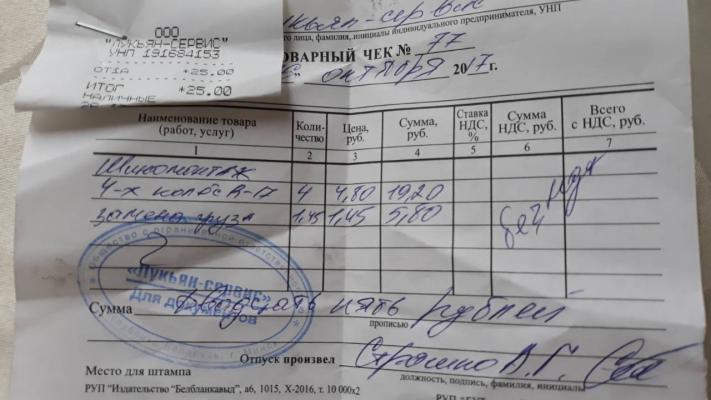 ООО
"ЛУКЬЯН-СЕРВИС"
УНП 191684153
ОТ1А *25.00
ИТОГ *25.00
НАЛИЧНЫЕ
кьян-сервис
го лица, фамилия, инициалы индивидуального предпринимателя, УНП
ОВАРНЫЙ ЧЕК № 77
” октября 2017 г.
Наименование товара (работ, услуг) Коли-чество Цена, руб. Сумма, руб. Ставка НДС, % Сумма НДС, руб. Всего с НДС, руб.
1 2 3 4 5 6 7
Шиномонтаж
4-х колёс R-17 4 4,80 19,20
замена груза 1,45 1,45 5,80 без НДС
Общество с ограниченной ответственностью
«Лукьян-сервис»
Для документов
г. Минск
Сумма Двадцать пять рублей
прописью
Отпуск произвел А.Г.
Место для штампа должность, подпись, фамилия, инициалы
РУП “Издательство “Белбланкавыд”, а6, 1015, X-2016, т. 10 000х2